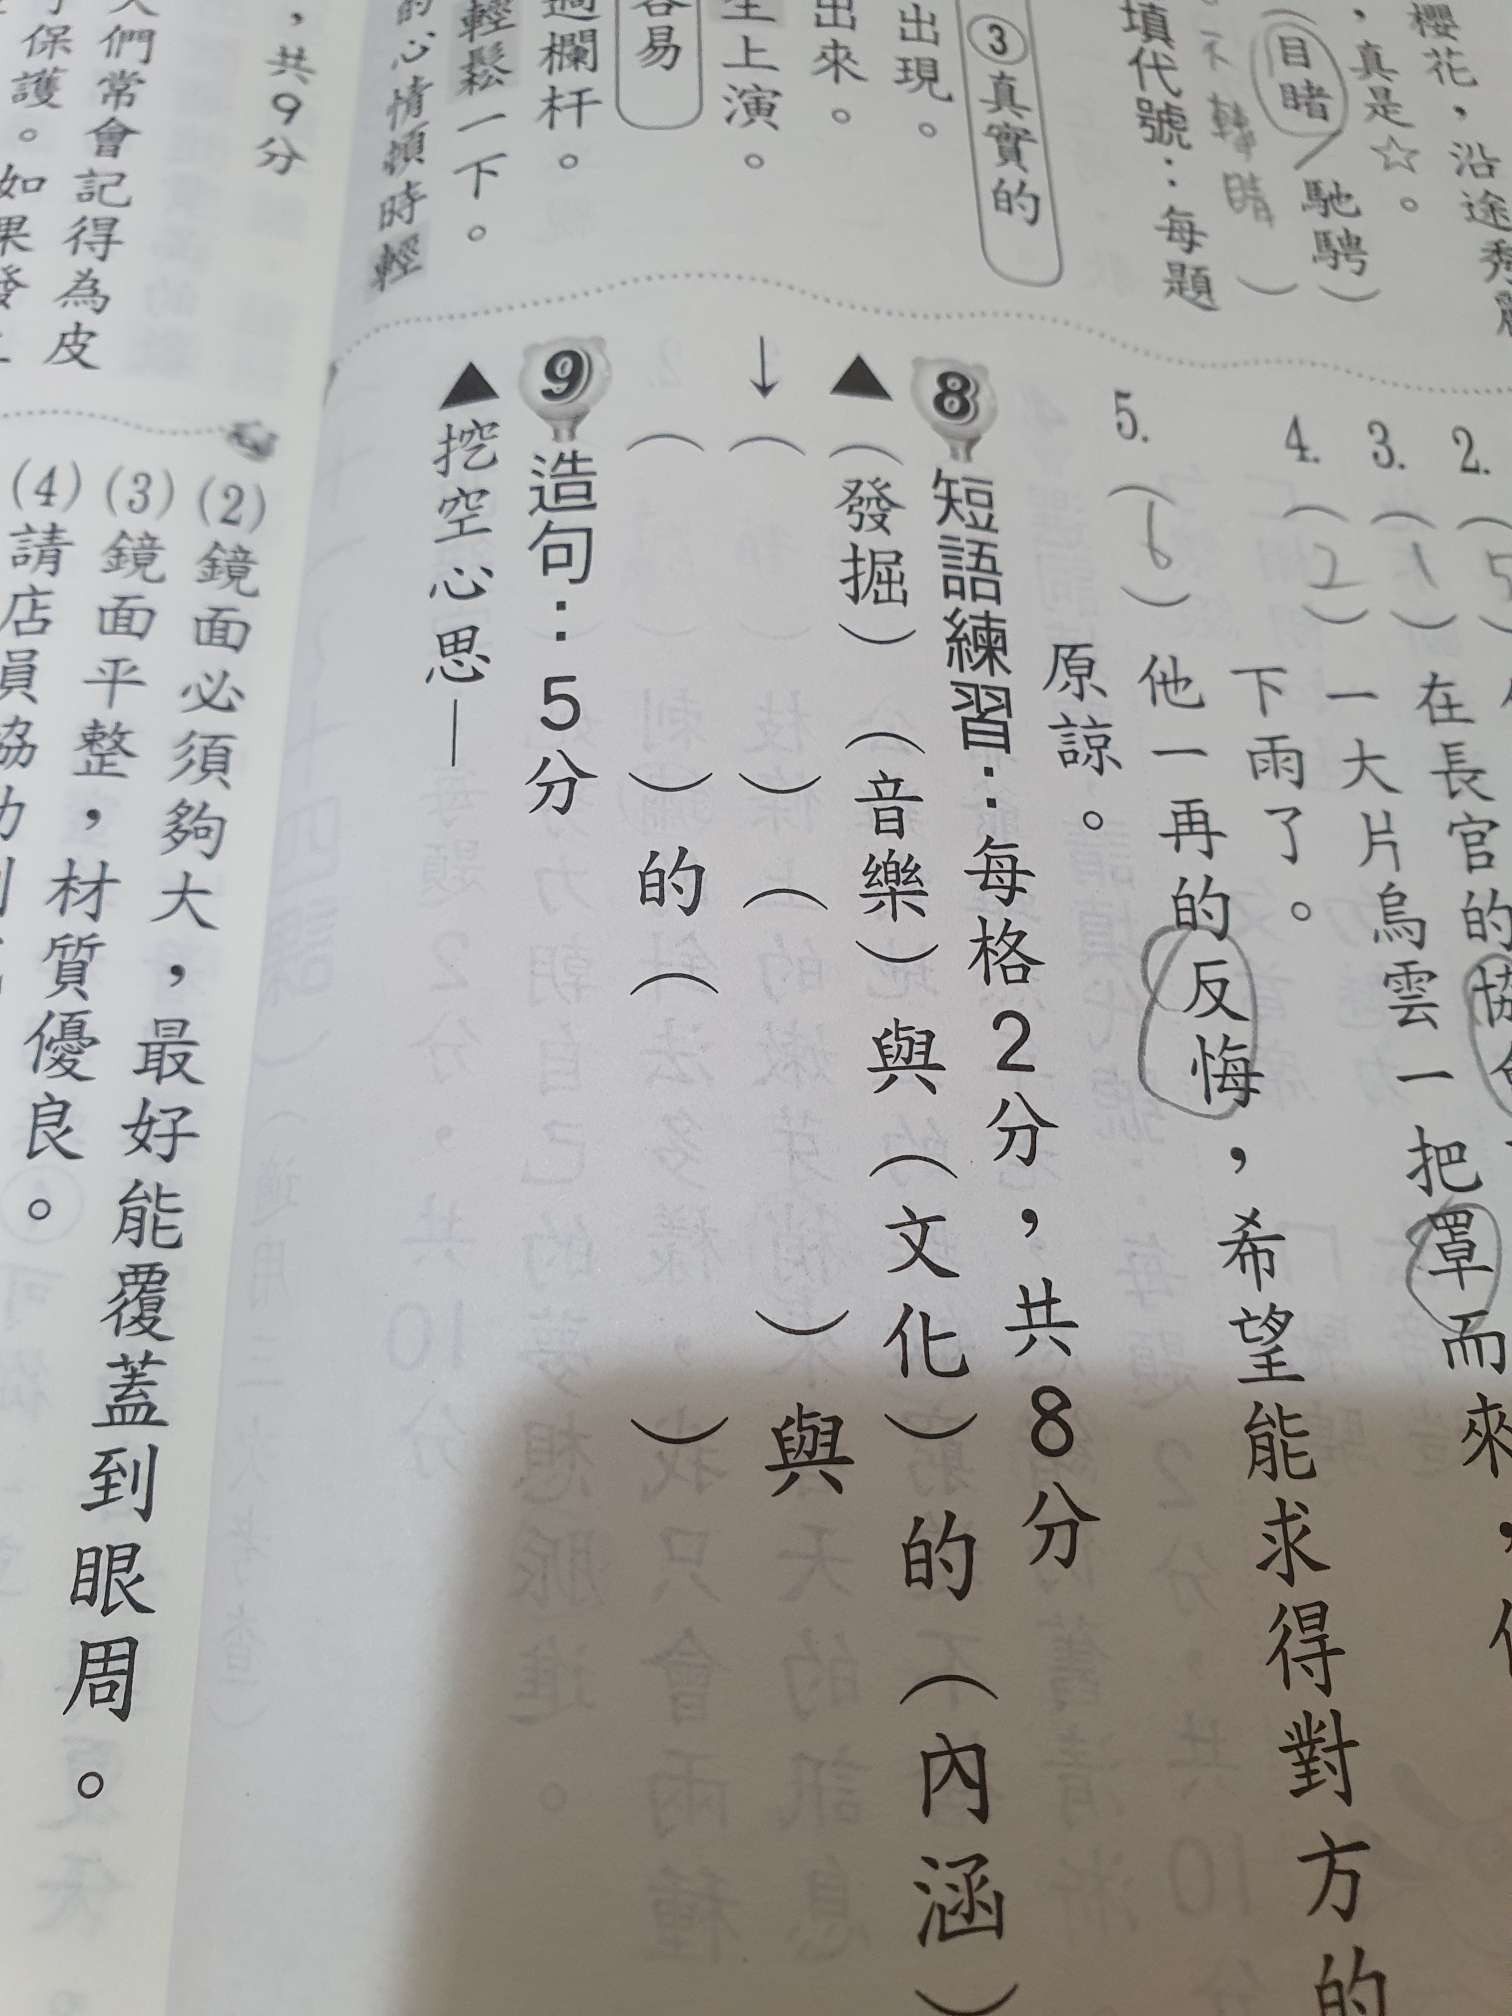 櫻花，沿途秀麗
，真是☆。
（目睹／馳騁）
不轉睛
填代號：每題
③真實的
出現。
出來。
生上演。
容易
過欄杆。
輕鬆一下。
的心情頓時輕
，共9分
人們常會記得為皮
保護。如果發生
2.（5
3.（1）在長官的協
4.（2）一大片烏雲一把罩而來，
下雨了。
5.（6）他一再的反悔，希望能求得對方的
原諒。
8 短語練習：每格2分，共8分
▲（發掘）（音樂）與（文化）的（內涵）
↓（　）（　）與
（　）的（　）
9 造句：5分
▲挖空心思—
(2)鏡面必須夠大，最好能覆蓋到眼周。
(3)鏡面平整，材質優良。
(4)請店員協助